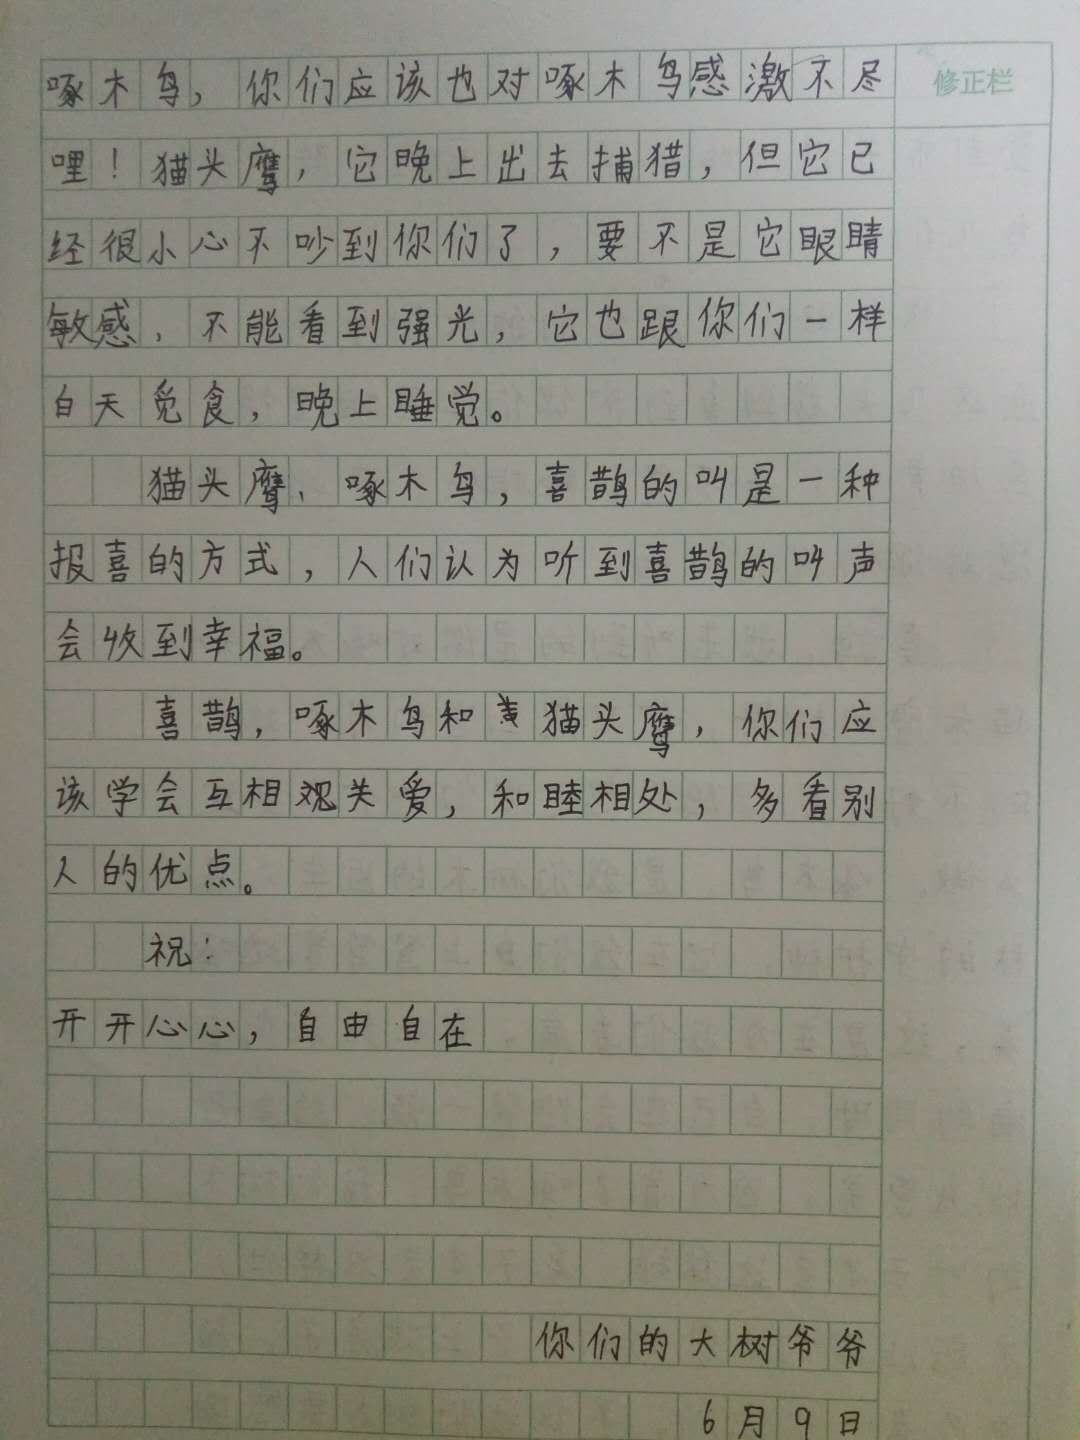 啄木鸟，你们应该也对啄木鸟感激不尽
修正栏
哩！猫头鹰，它晚上出去捕猎，但它已
经很小心不吵到你们了，要不是它眼睛
敏感，不能看到强光，它也跟你们一样
白天觅食，晚上睡觉。
猫头鹰、啄木鸟，喜鹊的叫是一种
报喜的方式，人们认为听到喜鹊的叫声
会收到幸福。
喜鹊，啄木鸟和猫头鹰，你们应
该学会互相观关爱，和睦相处，多看别
人的优点。
祝：
开开心心，自由自在
你们的大树爷爷
6月9日